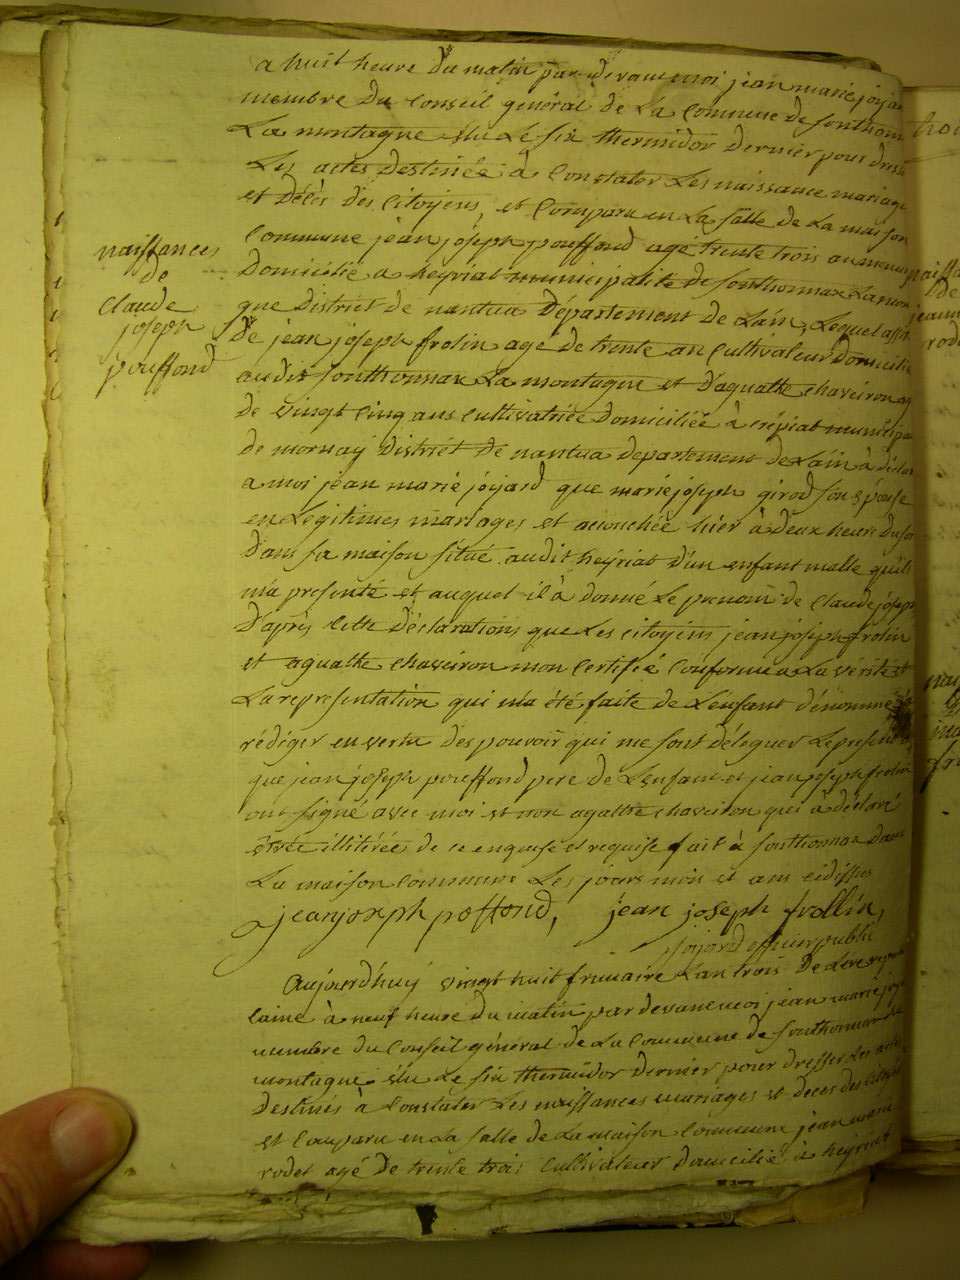 naissances
de
Claude
joseph
pouffond
a huit heure du matin par devant moi jean marie joyar
membre du Conseil général de La Commune de sonthonn
La montagne élu Le six thermidor dernier pour dress
Les actes destinée à Constater Les naissance mariage
et Décès des Citoyens, et Comparu en La salle de La maison
Commune jean joseph pouffond agé trente trois
Domicilié a heyriat municipalité de sonthonnax Lamon
gne District de nantua Département de Lain, Lequel assis
De jean joseph frolin agé de trente an Cultivateur Domicilié
audit sonthonnax La montagne et D'aguatte chaveiron ag
de vingt Cinq ans Cultivatrice domiciliée à crépiat municipa
de mornay District de nantua departement de Lain à déclar
a moi jean marie joyard que marie joseph girod son épouse
en Légitimes mariages et acouchée hier à deux heure du soi
Dans sa maison situé audit heyriat D'un enfant malle qu'il
m'a présenté et auquel il à donné Le prenom de Claude joseph
D'après Cette déclarations que Les citoyens jean joseph frolin
et aguatte chaveiron mon Certifié Conforme a La vérité et
La représentation qui m'a été faite de L'enfant dénommé
rédiger en vertu des pouvoir qui me sont déleguer Le présent
que jean joseph pouffond pere de L'enfant et jean joseph frolin
ont signé avec moi et non agatthe chaveiron qui à déclaré
être illitérée de ce enquise et requise fait à sonthonnax dans
La maison Commune Les jours mois et ans cidessus
jean joseph poffond, jean joseph frollin,
joyard officier public
Aujourd'huy vingt huit frimaire L'an trois De Lere répub
caine à neuf heure du matin par devant moi jean marie joya
membre du Conseil général de La Commune de sonthonnax La
montagne élu Le six thermidor dernier pour dresser Les actes
destinés à Constater Les naissances mariages et décès des Citoye
et Comparu en La salle de La maison Commune jean marie
rodet agé de trente trois Cultivateur domicilié à heyriat